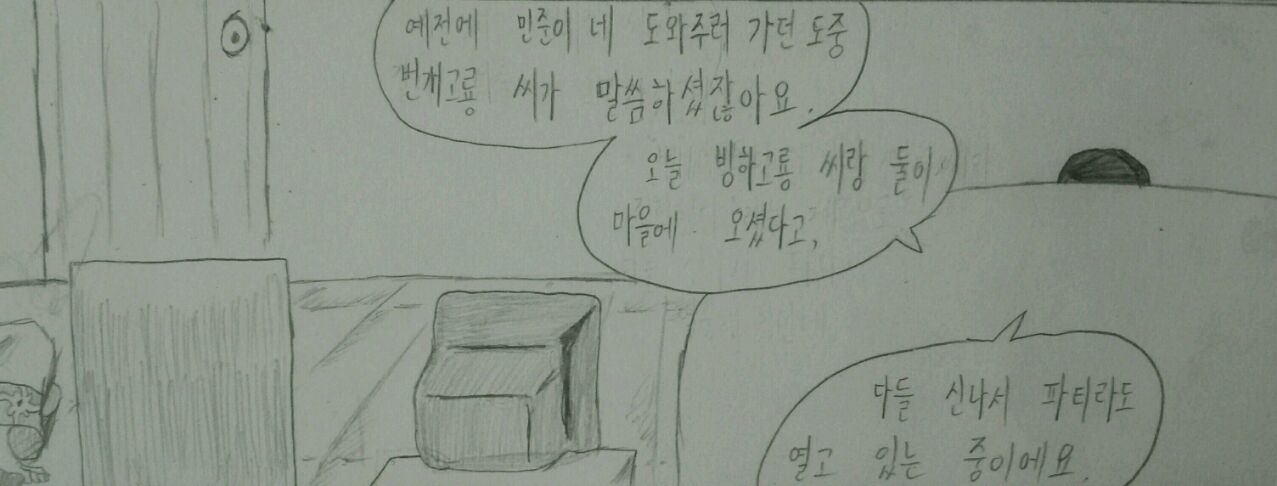 예전에 민준이 네 도와주러 가던 도중
번개고룡 씨가 말씀하셨잖아요.
오늘 빙하고룡 씨랑 둘이
마을에 오셨다고,
다들 신나서 파티라도
열고 있는 중이에요.